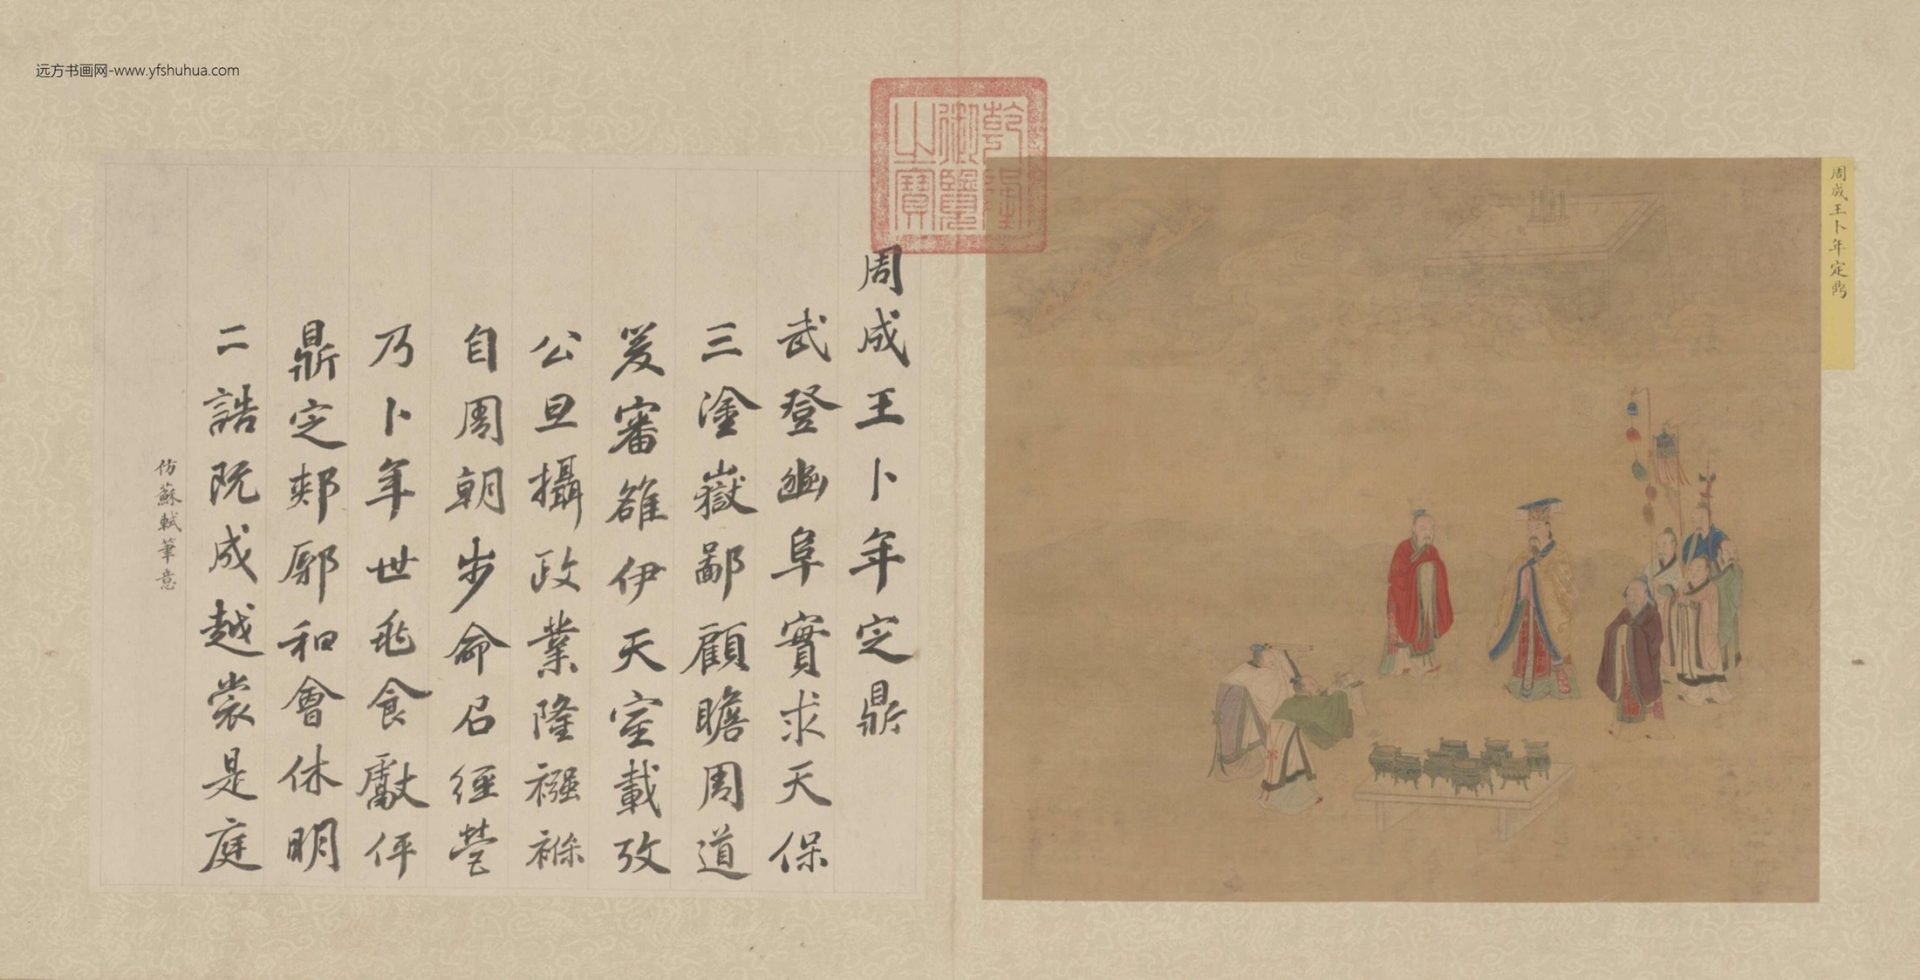 远方书画网-www.yfshuhua.com
周成王卜年定鼎
乾隆
御覽
之寶
周成王卜年定鼎
武登豳阜實求天保
三塗嶽鄙顧瞻周道
爰審雒伊天室載攷
公旦攝政業隆襁褓
自周朝步命召經營
乃卜年世兆食獻伻
鼎定郟鄏和會休明
二誥既成越裳是庭
仿蘇軾筆意